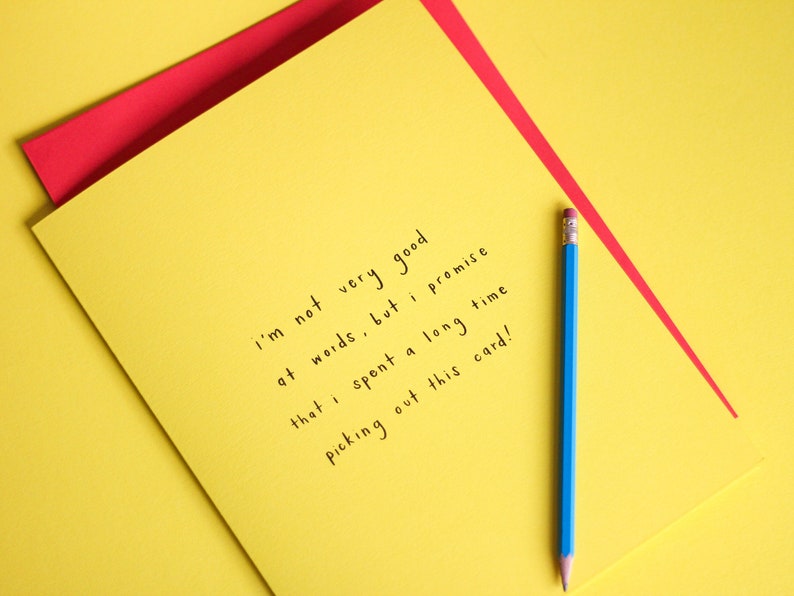 i'm not very good
at words, but i promise
that i spent a long time
picking out this card!